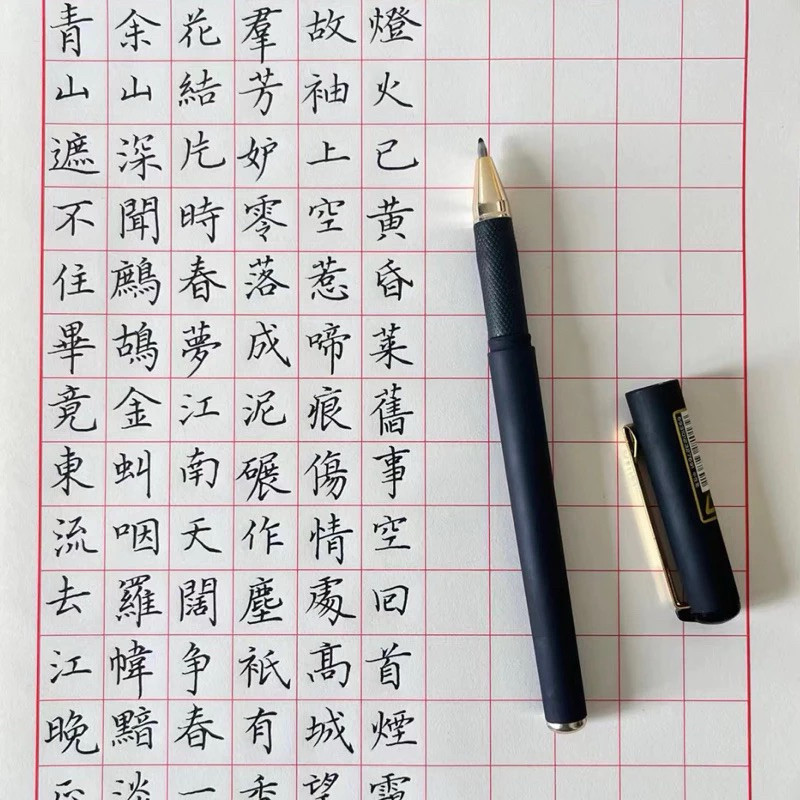 青山遮不住畢竟東流去江晚正
余山深聞鷓鴣金虯咽羅幃黯淡
花結片時春夢江南天闊争春一
羣芳妒零落成泥碾作塵祇有香
故袖上空惹啼痕傷情處髙城望
燈火已黄昏萊舊事空回首煙靄